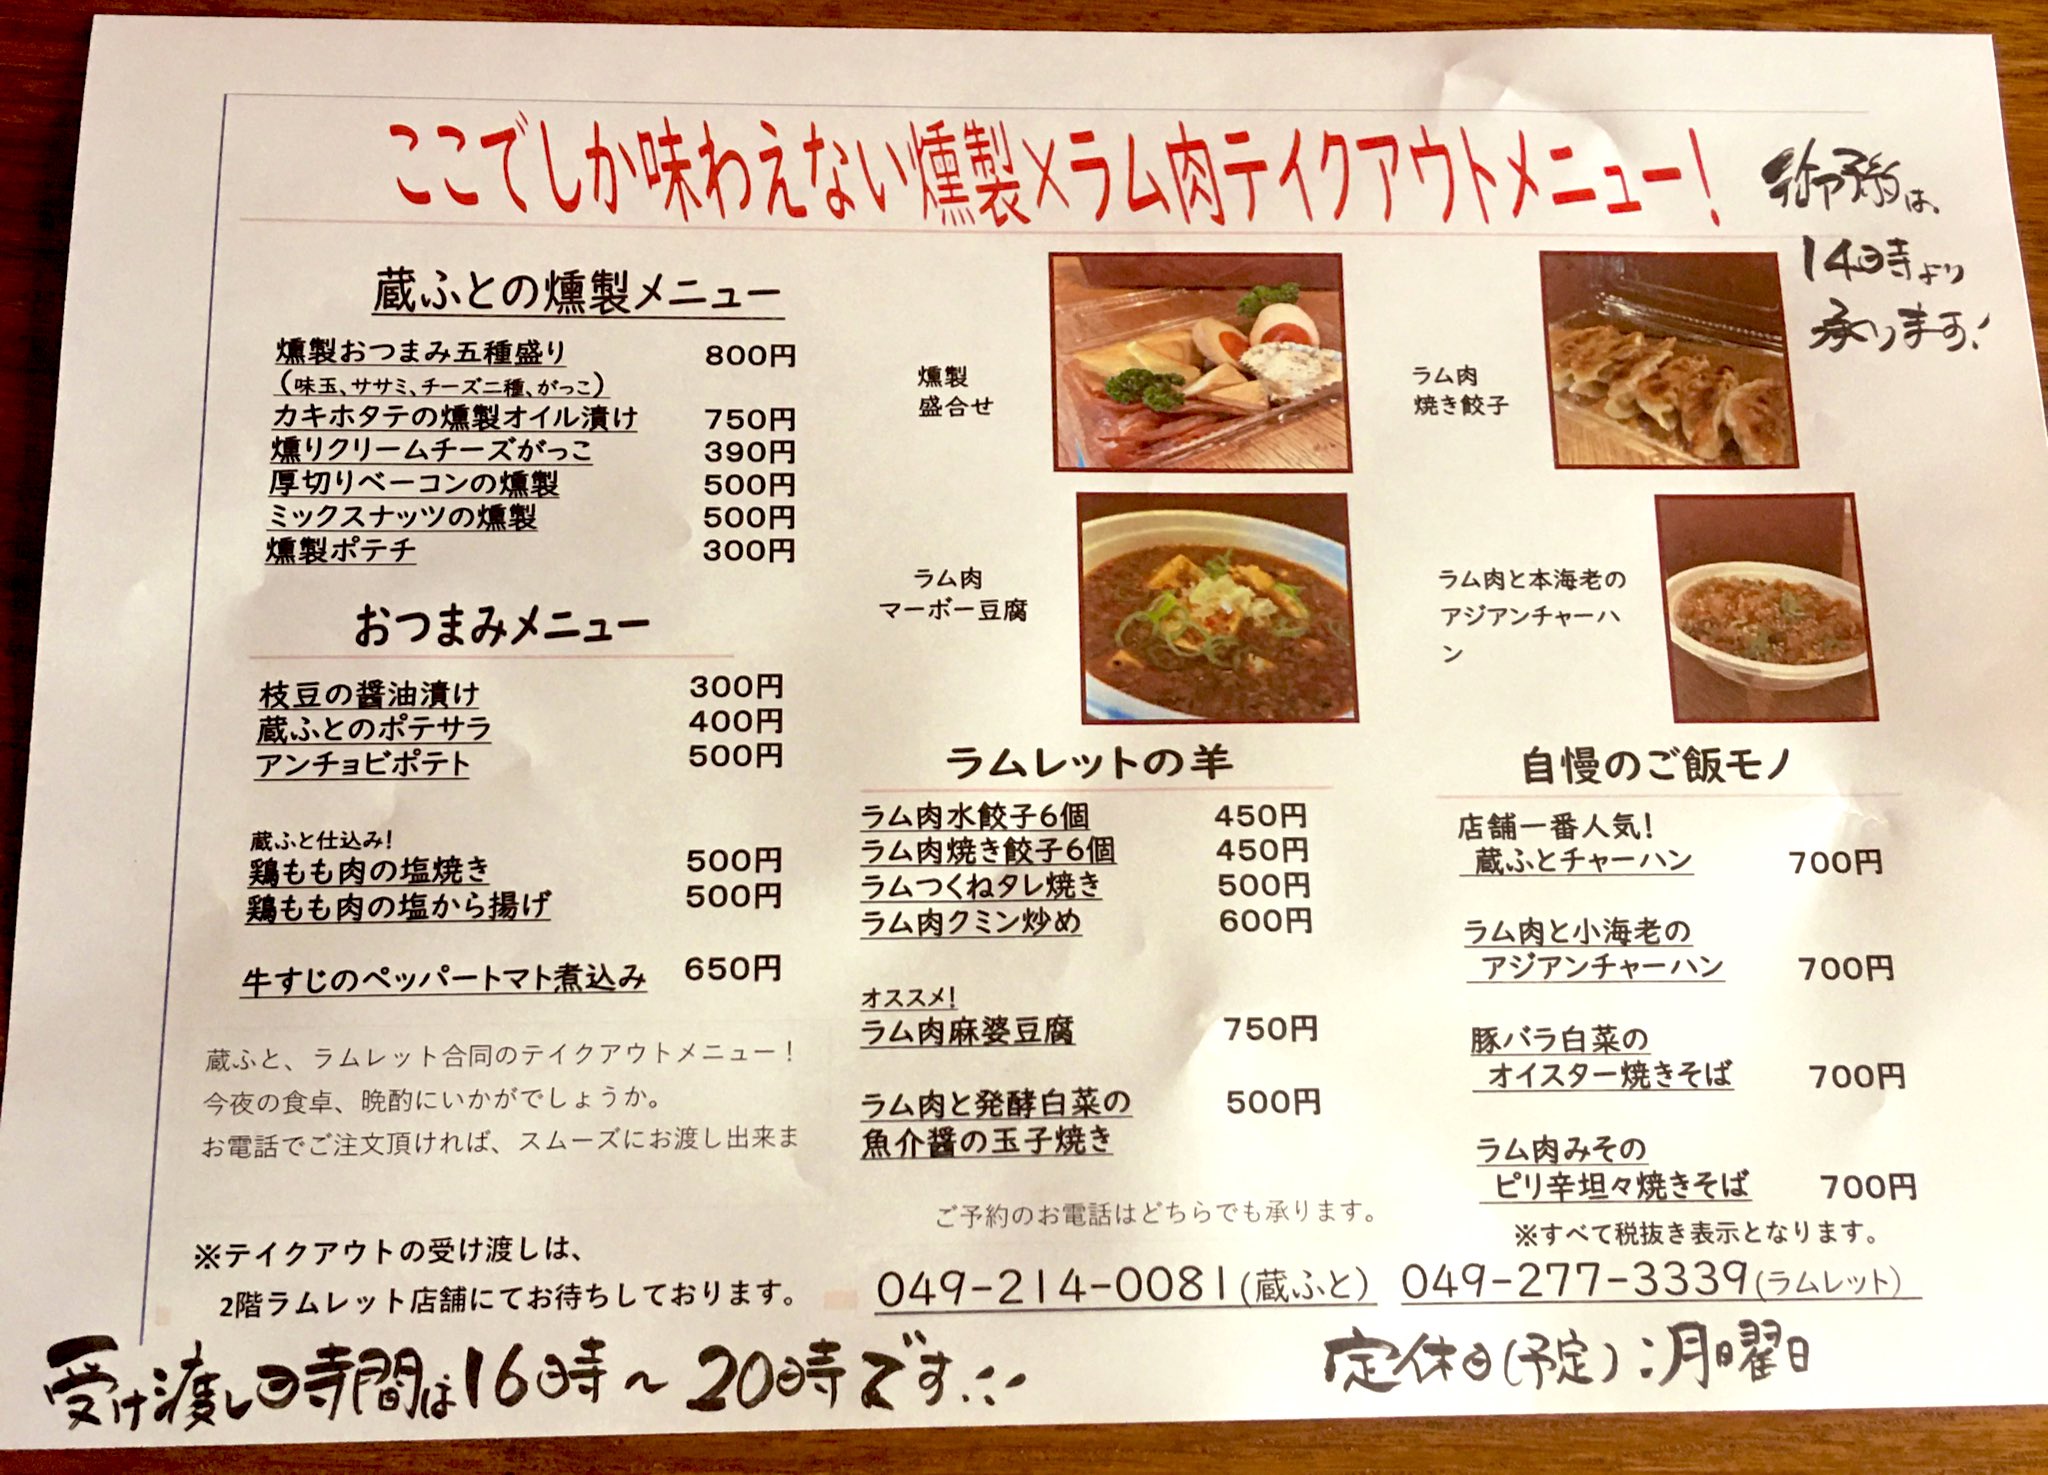 ここでしか味わえない燻製×ラム肉テイクアウトメニュー！
御予約は、
14時より
承ります！
蔵ふとの燻製メニュー
燻製おつまみ五種盛り 800円
（味玉、ササミ、チーズ二種、がっこ）
カキホタテの燻製オイル漬け 750円
燻りクリームチーズがっこ 390円
厚切りベーコンの燻製 500円
ミックスナッツの燻製 500円
燻製ポテチ 300円
おつまみメニュー
枝豆の醤油漬け 300円
蔵ふとのポテサラ 400円
アンチョビポテト 500円
蔵ふと仕込み！
鶏もも肉の塩焼き 500円
鶏もも肉の塩から揚げ 500円
牛すじのペッパートマト煮込み 650円
蔵ふと、ラムレット合同のテイクアウトメニュー！
今夜の食卓、晩酌にいかがでしょうか。
お電話でご注文頂ければ、スムーズにお渡し出来ま
※テイクアウトの受け渡しは、
2階ラムレット店舗にてお待ちしております。
燻製
盛合せ
ラム肉
焼き餃子
ラム肉
マーボー豆腐
ラム肉と本海老の
アジアンチャーハ
ン
ラムレットの羊
ラム肉水餃子6個 450円
ラム肉焼き餃子6個 450円
ラムつくねタレ焼き 500円
ラム肉クミン炒め 600円
オススメ！
ラム肉麻婆豆腐 750円
ラム肉と発酵白菜の 500円
魚介醤の玉子焼き
自慢のご飯モノ
店舗一番人気！
蔵ふとチャーハン 700円
ラム肉と小海老の
アジアンチャーハン 700円
豚バラ白菜の
オイスター焼きそば 700円
ラム肉みその
ピリ辛坦々焼きそば 700円
※すべて税抜き表示となります。
ご予約のお電話はどちらでも承ります。
049-214-0081（蔵ふと） 049-277-3339（ラムレット）
受け渡し時間は16時～20時です!!
定休日（予定）：月曜日